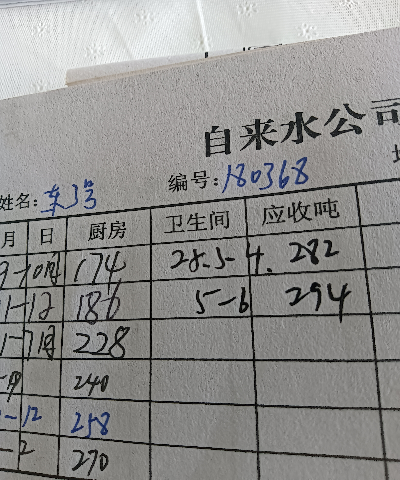 自来水公司
姓名: 东3号 编号: 180368
月 日 厨房 卫生间 应收吨
9-10月 174 28.5-4. 282
11-12 186 5-6 294
1-7月 228
240
-12 258
-2 270